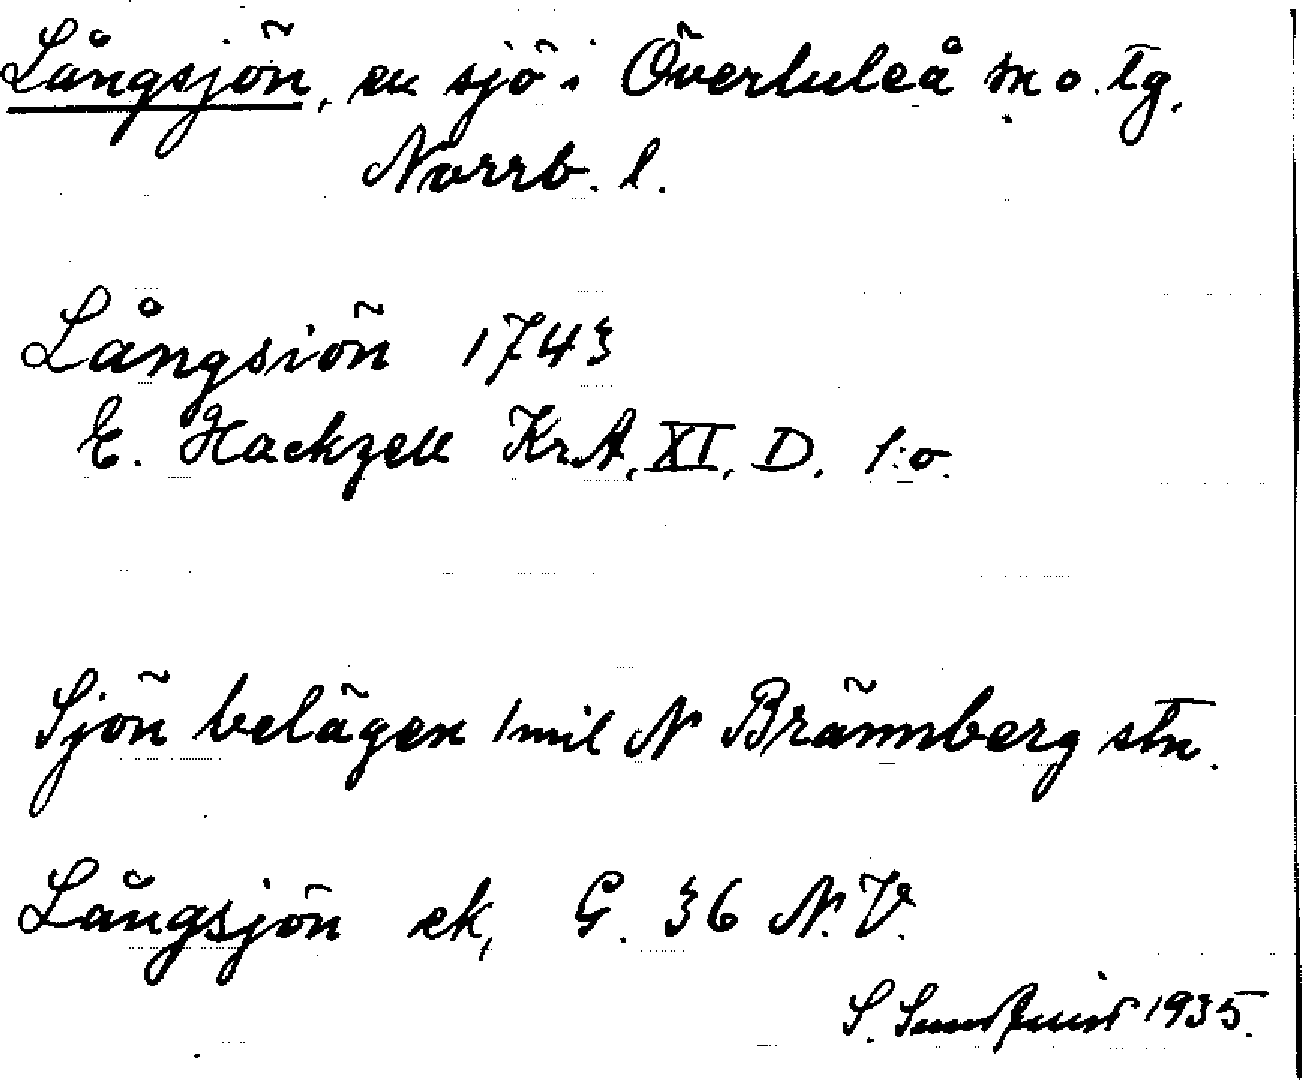 Långsjön, en sjö i Överluleå sn o. tg.
Norrb. l.
Långsiön 1743
E. Hackzell Kr.A. XI. D. 1:o.
Sjön belägen 1 mil N Brännberg stn.
Långsjön ek, G. 36 N.V.
S. Sundquist 1935.